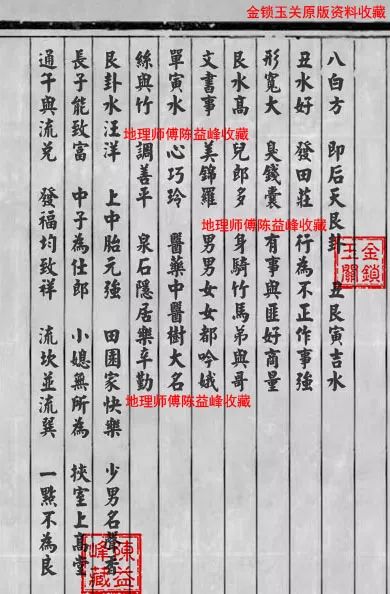 金锁玉关原版资料收藏
八白方　即后天艮卦　丑艮寅吉水
丑水好　發田莊　行為不正作事強
形寬大　臭錢囊　有事與匪好商量
艮水高　兒郎多　身騎竹馬弟與哥
文書事　美錦羅　男男女女都吟娥
單寅水　心巧玲　醫藥中醫樹大名
絲與竹　調善平　泉石隱居樂辛勤
艮卦水汪洋　上中胎元強　田園家快樂　少男名聲香
長子能致富　中子為仕郎　小媳無所為　挾室上高堂
通乎與流兌　發福均致祥　流坎並流巽　一點不為良
地理师傅陈益峰收藏
地理师傅陈益峰收藏
地理师傅陈益峰收藏
金鎖玉關
陳益峰藏